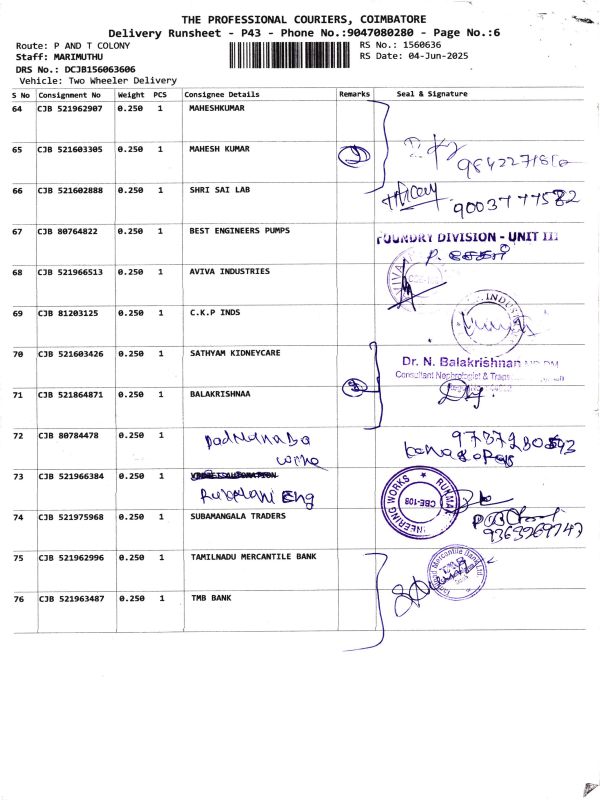 THE PROFESSIONAL COURIERS, COIMBATORE
Delivery Runsheet - P43 - Phone No.:9047080280 - Page No.:6
Route: P AND T COLONY
RS No.: 1560636
Staff: MARIMUTHU
RS Date: 04-Jun-2025
DRS No.: DCJB156063606
Vehicle: Two Wheeler Delivery
S No Consignment No Weight PCS Consignee Details Remarks Seal & Signature
64 CJB 521962907 0.250 1 MAHESHKUMAR
65 CJB 521603305 0.250 1 MAHESH KUMAR
66 CJB 521602888 0.250 1 SHRI SAI LAB
9003777582
67 CJB 80764822 0.250 1 BEST ENGINEERS PUMPS
FOUNDRY DIVISION - UNIT III
68 CJB 521966513 0.250 1 AVIVA INDUSTRIES
69 CJB 81203125 0.250 1 C.K.P INDS
70 CJB 521603426 0.250 1 SATHYAM KIDNEYCARE
Dr. N. Balakrishnan
Consultant Nephrologist &
71 CJB 521864871 0.250 1 BALAKRISHNAA
72 CJB 80784478 0.250 1
73 CJB 521966384 0.250 1
Eng
CBE-108
74 CJB 521975968 0.250 1 SUBAMANGALA TRADERS
75 CJB 521962996 0.250 1 TAMILNADU MERCANTILE BANK
Mercantile Bank Ltd
76 CJB 521963487 0.250 1 TMB BANK